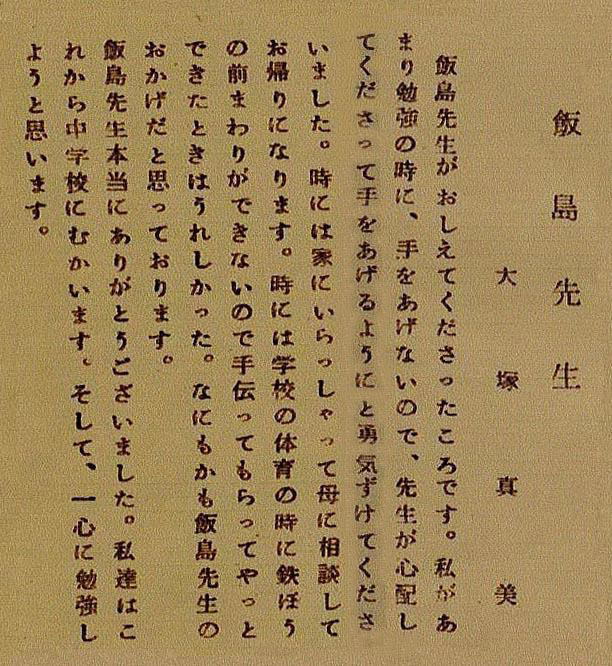 飯島先生
大塚真美
飯島先生がおしえてくださったころです。私があ
まり勉強の時に、手をあげないので、先生が心配し
てくださって手をあげるようにと勇気ずけてくださ
いました。時には家にいらっしゃって母に相談して
お帰りになります。時には学校の体育の時に鉄ぼう
の前まわりができないので手伝ってもらってやっと
できたときはうれしかった。なにもかも飯島先生の
おかげだと思っております。
飯島先生本当にありがとうございました。私達はこ
れから中学校にむかいます。そして、一心に勉強し
ようと思います。